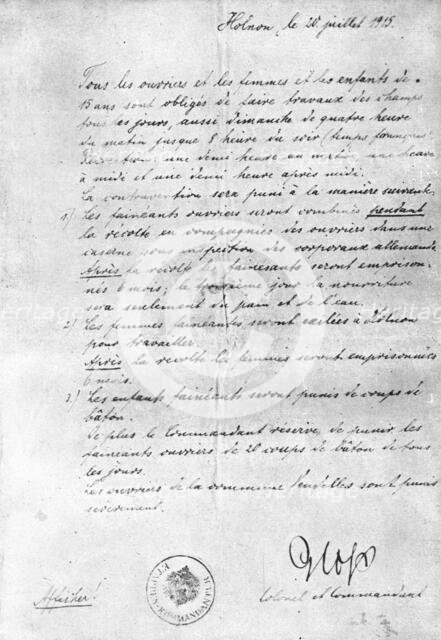 Holnon, le 20. juillet 1915.
Tous les ouvriers et les femmes et les enfants de
15 ans sont obligés de faire travaux des champs
tous les jours, aussi dimanche de quatre heure
du matin jusque 8 heure du soir (temps français)
Récréation: une demi heure au matin, une heure
à midi et une demi heure après midi.
La contravention sera puni à la manière suivante.
1) Les fainéants ouvriers seront combinés pendant
la récolte en compagnies des ouvriers dans une
caserne sous inspection des corporaux allemands
Après la récolte les fainéants seront emprison-
nés 6 mois; le troisième jour la nourriture
sera seulement du pain et de l'eau.
2) Les femmes fainéantes seront exilées à Holnon
pour travailler.
Après la récolte les femmes seront emprisonnées
6 mois.
3) Les enfants fainéants seront punis de coups de
bâton.
De plus le Commandant reserve de punir les
fainéants ouvriers de 20 coups de bâton de tous
les jours.
Les ouvriers de la commune Vendelles sont punis
sévèrement.
Afficher!
Gloss
Colonel et Commandant
ETAPPEN-KOMMANDANTUR
Heritage